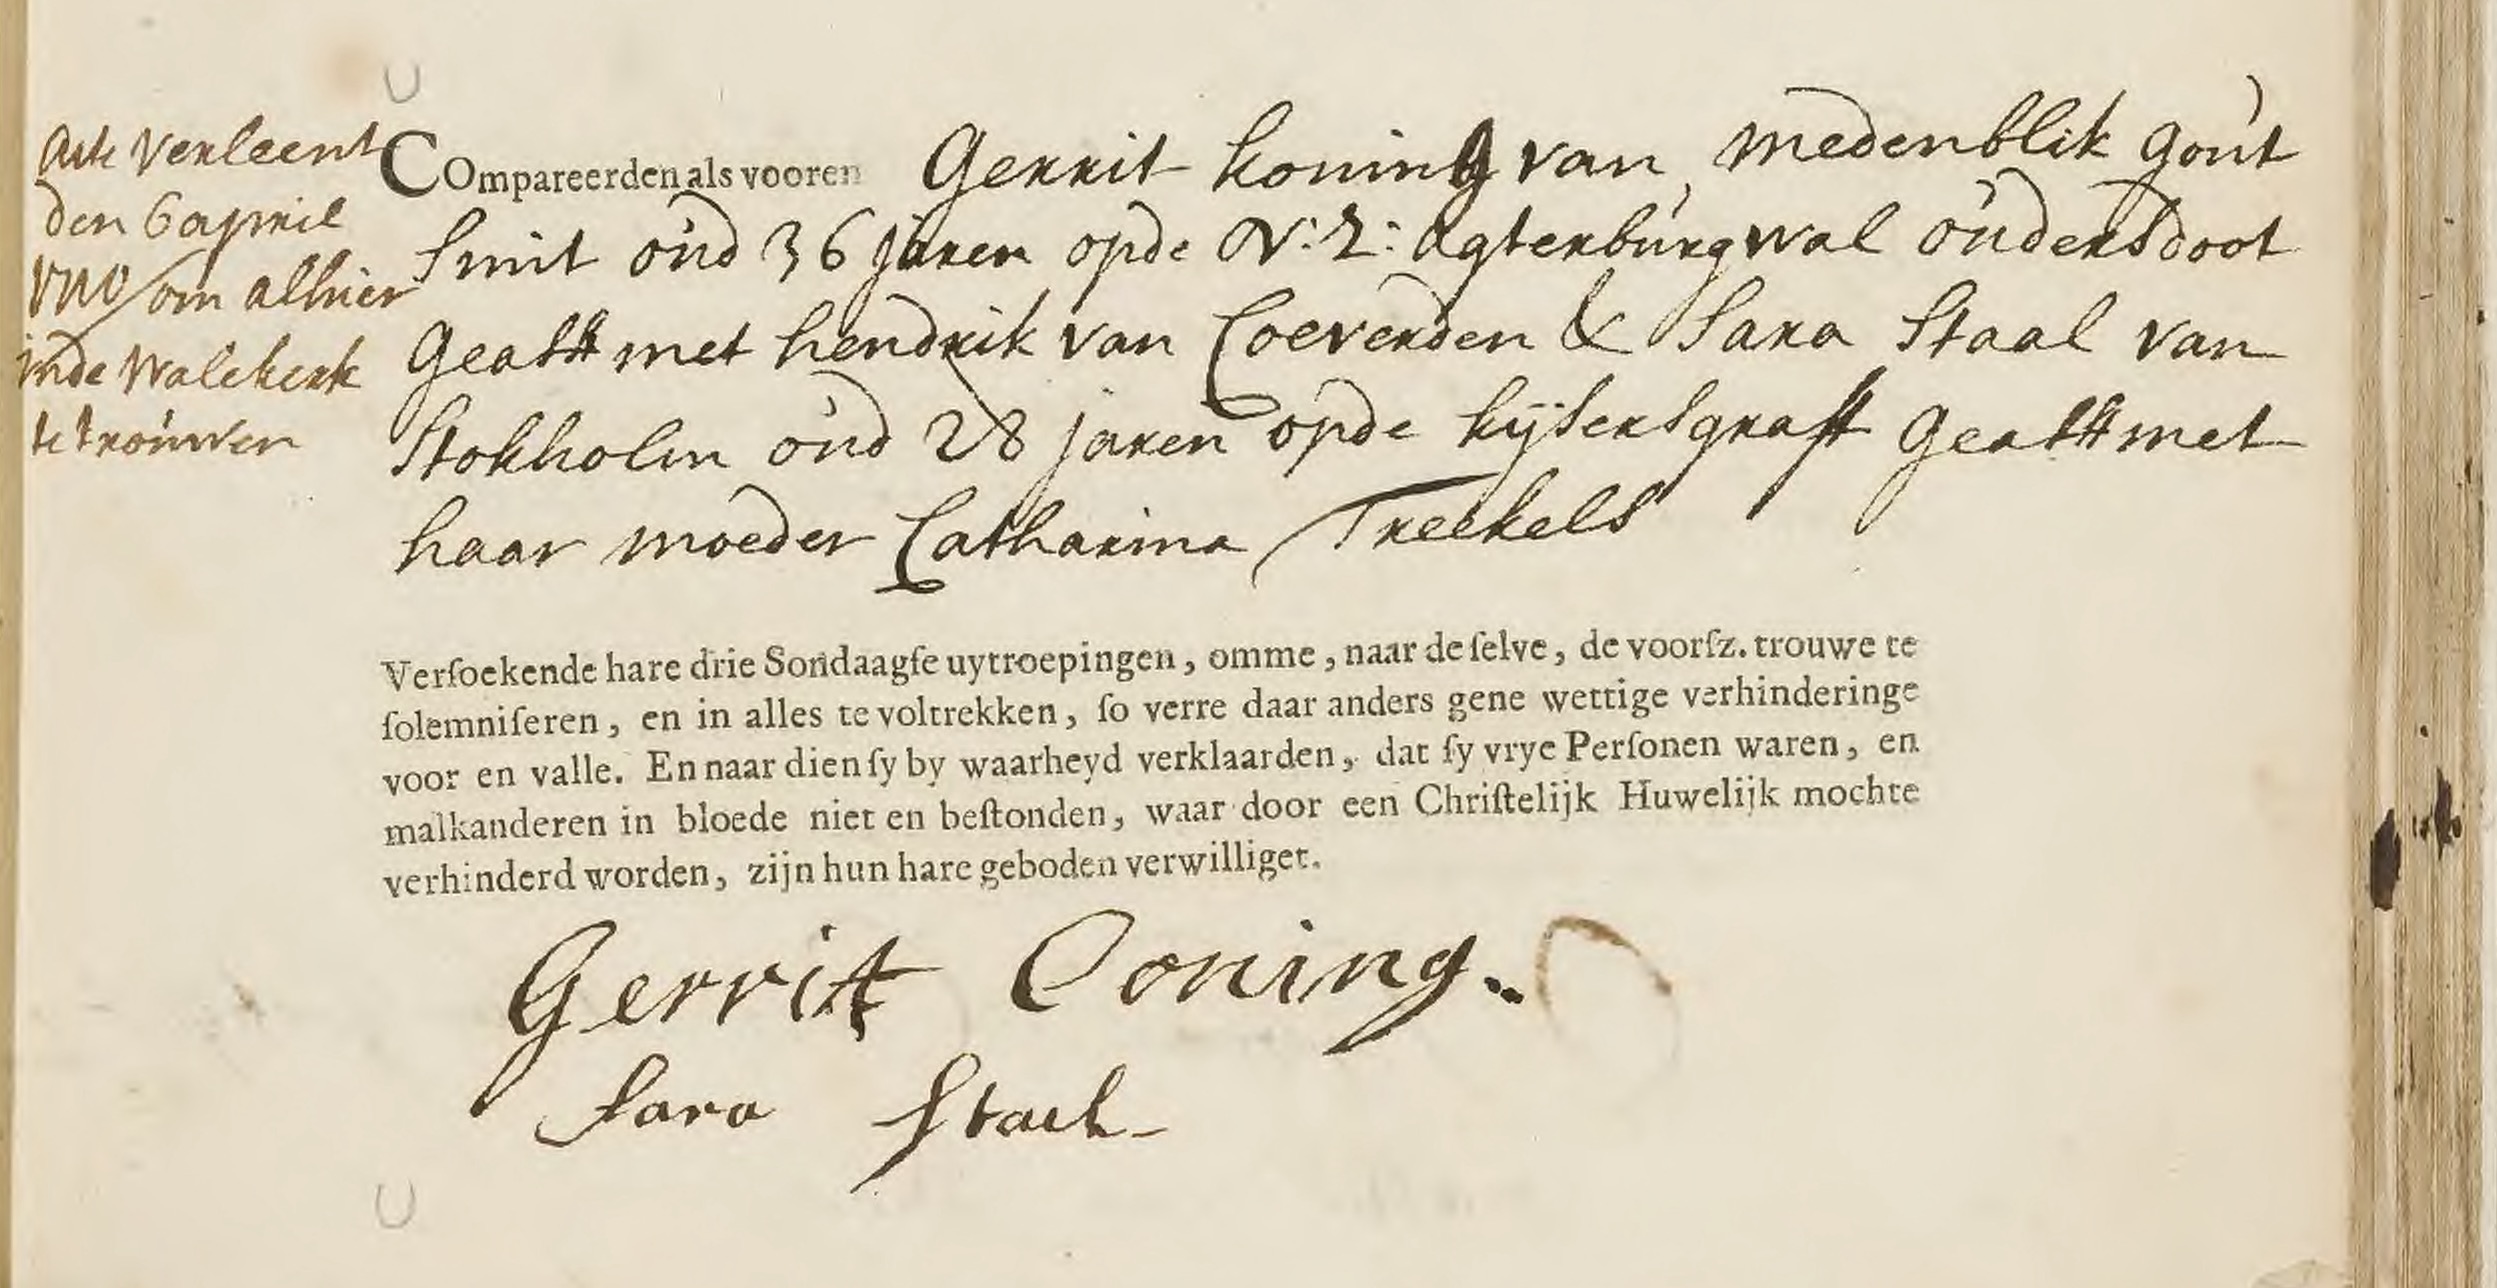 Acte verleent
den 6 april
1710 / om alhier
inde Walekerk
te trouwen
COmpareerden als vooren Gerrit koning van medenblik gout
Smit oud 36 jaren opde N: Z: Agterburgwal ouders doot
Geasst met hendrik van Coeverden & Sara Staal van
Stokholm oud 28 jaren opde kijsersgraft Geasst met
haar moeder Catharina Treekels
Verſoekende hare drie Sondaagſe uytroepingen, omme, naar de ſelve, de voorſz. trouwe te
ſolemniſeren, en in alles te voltrekken, ſo verre daar anders gene wettige verhinderinge
voor en valle. En naar dien ſy by waarheyd verklaarden, dat ſy vrye Perſonen waren, en
malkanderen in bloede niet en beſtonden, waar door een Chriſtelijk Huwelijk mochte
verhinderd worden, zijn hun hare geboden verwilliget.
Gerrit Coning
Sara Stael